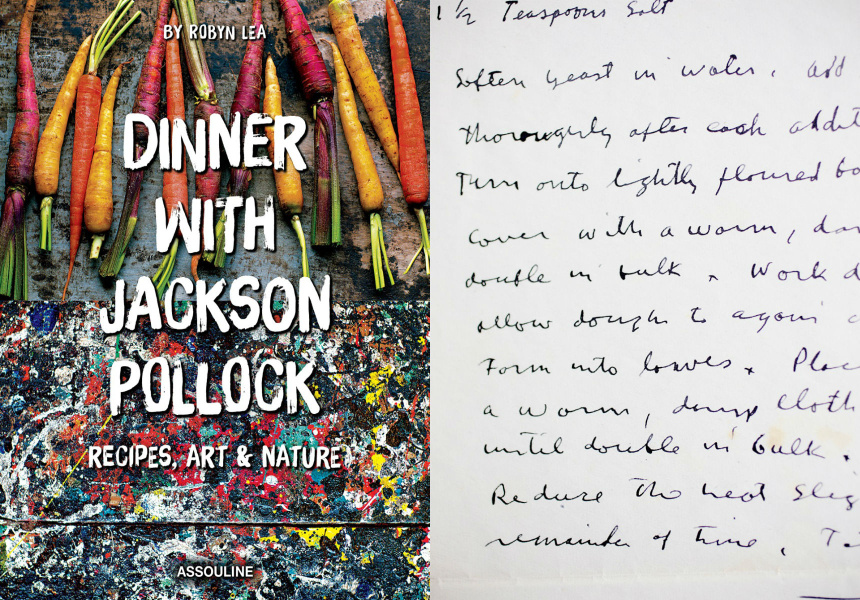 BY ROBYN LEA
DINNER
WITH
JACKSON
POLLOCK
RECIPES, ART & NATURE
ASSOULINE
1 1/2 Teaspoons Salt
Soften yeast in water, add
thoroughly after each addit
Turn onto lightly floured bo
cover with a warm, dam
double in bulk. Work d
allow dough to again
Form into loaves. Place
a warm, damp cloth
until double in bulk.
Reduce the heat slig
remainder of time.